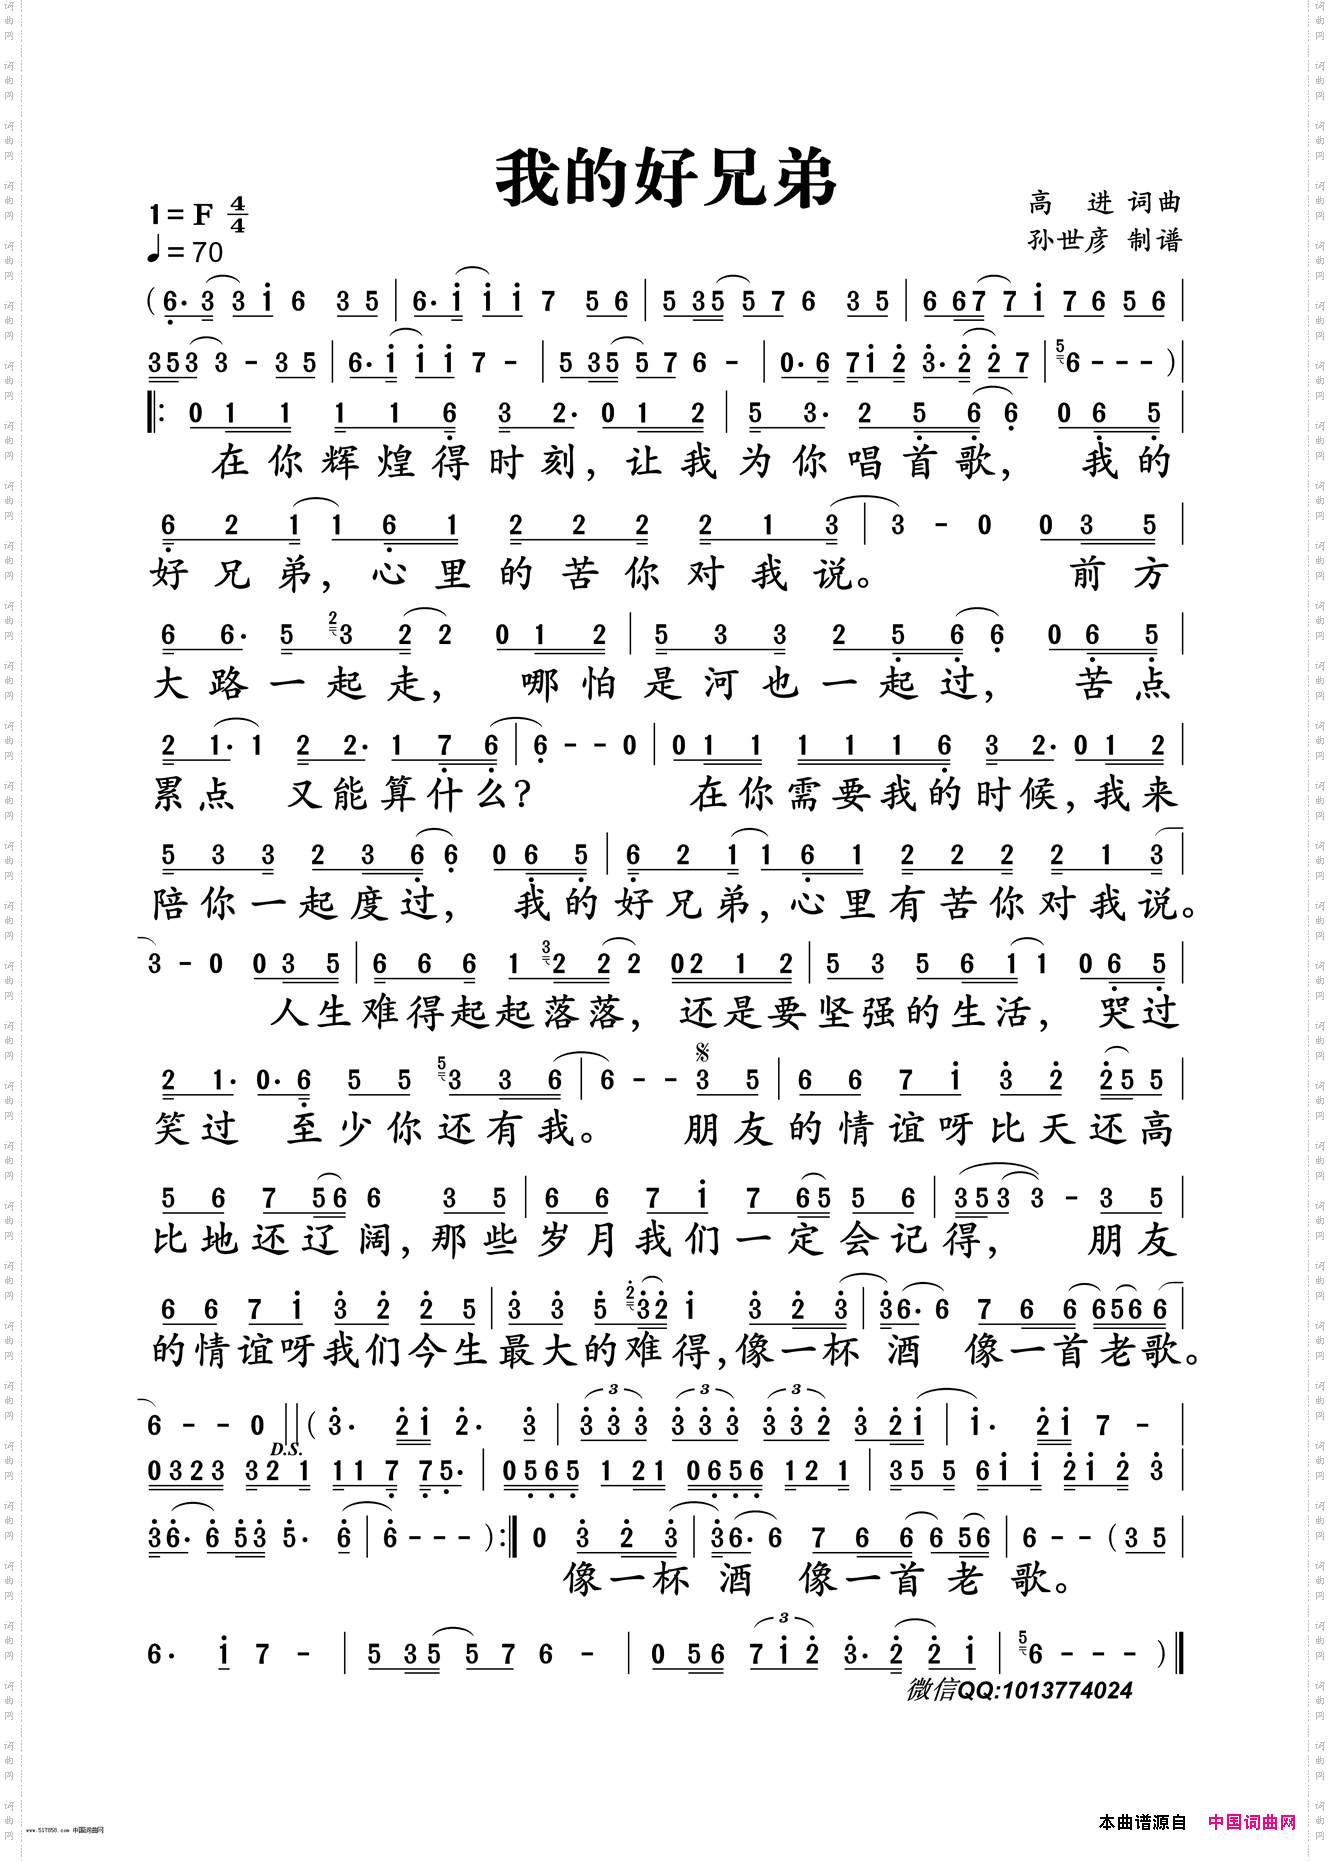 我的好兄弟
1=F 4/4
高 进 词曲
♩=70
孙世彦 制谱
(6. 3 3 1 6 3 5 | 6. 1 1 1 7 5 6 | 5 3 5 5 7 6 3 5 | 6 6 7 7 1 7 6 5 6 |
3 5 3 3 - 3 5 | 6. 1 1 1 7 - | 5 3 5 5 7 6 - | 0. 6 7 1 2 3. 2 2 7 | 5 6 - - - ) |
‖: 0 1 1 1 1 6 3 2. 0 1 2 | 5 3. 2 5 6 6 0 6 5 |
在你辉煌得时刻,让我为你唱首歌, 我的
6 2 1 1 6 1 2 2 2 2 1 3 | 3 - 0 0 3 5 |
好兄弟,心里的苦你对我说。 前方
6 6. 5 2 3 2 2 0 1 2 | 5 3 3 2 5 6 6 0 6 5 |
大路一起走, 哪怕是河也一起过, 苦点
2 1. 1 2 2. 1 7 6 | 6 - - 0 | 0 1 1 1 1 1 6 3 2. 0 1 2 |
累点 又能算什么? 在你需要我的时候,我来
5 3 3 2 3 6 6 0 6 5 | 6 2 1 1 6 1 2 2 2 2 1 3 |
陪你一起度过, 我的好兄弟,心里有苦你对我说。
3 - 0 0 3 5 | 6 6 6 1 3 2 2 2 0 2 1 2 | 5 3 5 6 1 1 0 6 5 |
人生难得起起落落, 还是要坚强的生活, 哭过
2 1. 0. 6 5 5 5 3 3 6 | 6 - - 𝄋 3 5 | 6 6 7 1 3 2 2 5 5 |
笑过 至少你还有我。 朋友的情谊呀比天还高
5 6 7 5 6 6 3 5 | 6 6 7 1 7 6 5 5 6 | 3 5 3 3 - 3 5 |
比地还辽阔,那些岁月我们一定会记得, 朋友
6 6 7 1 3 2 2 5 | 3 3 5 2 3 2 1 3 2 3 | 3 6. 6 7 6 6 6 5 6 6 |
的情谊呀我们今生最大的难得,像一杯酒 像一首老歌。
6 - - 0 ‖ ( 3. 2 1 2. 3 | 3 3 3 3 3 3 3 3 2 3 2 1 | 1. 2 1 7 - |
D.S.
0 3 2 3 3 2 1 1 1 7 7 5. | 0 5 6 5 1 2 1 0 6 5 6 1 2 1 | 3 5 5 6 1 1 2 1 2 3 |
3 6. 6 5 3 5. 6 | 6 - - - ) :‖ 0 3 2 3 | 3 6. 6 7 6 6 6 5 6 | 6 - - ( 3 5 |
像一杯酒 像一首老歌。
6. 1 7 - | 5 3 5 5 7 6 - | 0 5 6 7 1 2 3. 2 2 1 | 5 6 - - - ) ‖
微信QQ:1013774024
本曲谱源自 中国词曲网
www.517858.com 中国词曲网